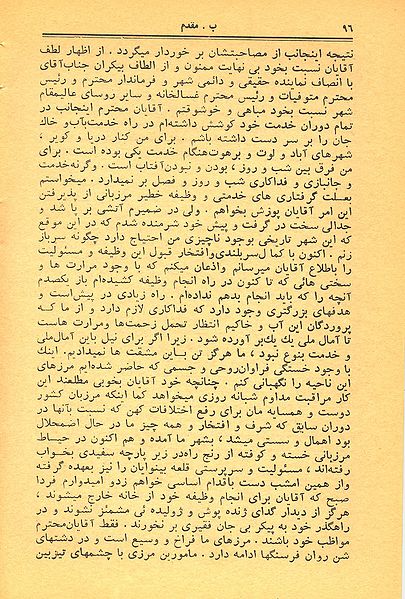 ۹۶
ب . مقدم
نتیجه اینجانب از مصاحبتشان بر خوردار میگردد . از اظهار لطف
آقایان نسبت بخود بی نهایت ممنون و از الطاف بیکران جناب‌آقای
با انصاف نماینده حقیقی و دائمی شهر و فرماندار محترم و رئیس
محترم متوفیات و رئیس محترم غسالخانه و سایر روسای عالیمقام
شهر نسبت بخود مباهی و خوشوقتم . آقایان محترم اینجانب در
تمام دوران خدمت خود کوشش داشته‌ام در راه خدمت‌بآب‌و خاک
جان را بر سر دست داشته باشم . برای من کنار دریا و کویر ،
شهرهای آباد و لوت و برهوت‌هنگام خدمت یکی بوده است . برای
من فرق بین شب و روز ، بودن و نبودن‌آفتاب است . وگرنه‌خدمت
و جانبازی و فداکاری شب و روز و فصل بر نمیدارد . میخواستم
بعلت گرفتاری های خدمتی و وظیفه خطیر مرزبانی از پذیرفتن
این امر آقایان پوزش بخواهم . ولی در ضمیرم آتشی بر پا شد و
جدالی سخت در گرفت و پیش خود شرمنده شدم که در این موقع
که این شهر تاریخی بوجود ناچیزی من احتیاج دارد چگونه سرباز
زنم . اکنون با کمال سربلندی‌وافتخار قبول این وظیفه و مسئولیت
را باطلاع آقایان میرسانم واذعان میکنم که با وجود مرارت ها و
سختی هائی که تا کنون در راه انجام وظیفه کشیده‌ام باز یکصدم
آنچه را که باید انجام بدهم نداده‌ام . راه زیادی در پیش‌است و
هدفهای بزرگتری وجود دارد که فداکاری لازم دارد و از ما کــه
پروردگان این آب و خاکیم انتظار تحمل زحمت‌ها ومرارت هاست
تا آمال ملی یک یک‌بر آورده شود . زیرا اگر برای نیل باین آمال‌ملی
و خدمت بنوع نبود ، ما هرگز تن بــاین مشقت ها نمیدادیم. اینک
با وجود خستگی فراوان‌روحی و جسمی که حاضر شده‌ایم مرزهای
این ناحیه را نگهبانی کنم . چنانچه خود آقایان بخوبی مطلعند این
کار مراقبت مداوم شبانه روزی میخواهد کما اینکه مرزبان کشور
دوست و همسایه مان برای رفع اختلافات کهن که نسبت بآنها در
دوران سابق که شرف و افتخار و همه چیز ما در حال اضمحلال
بود اهمال و سستی میشد ، بشهر ما آمده و هم اکنون در حیـاط
مرزبانی خسته و کوفته از رنج راه‌در زیر پارچه سفیدی بخـواب
رفته‌اند ، مسئولیت و سرپرستی قلعه بینوایان را نیز بعهده گرفته
واز همین امشب دست باقدام اساسی خواهم زدو امیدوارم فردا
صبح که آقایان برای انجام وظیفه خود از خانه خارج میشوند ،
هرگز از دیدار گدای ژنده پوش و ژولیده ئی مشمئز نشوند و در
راهگذر خود به پیکر بی جان فقیری بر نخورند . فقط آقایان‌محترم
مواظب خود باشند . مرزهای ما فراخ و وسیع است و در دشتهای
شن روان فرسنگها ادامه دارد . مامورین مرزی با چشمهای تیزبین